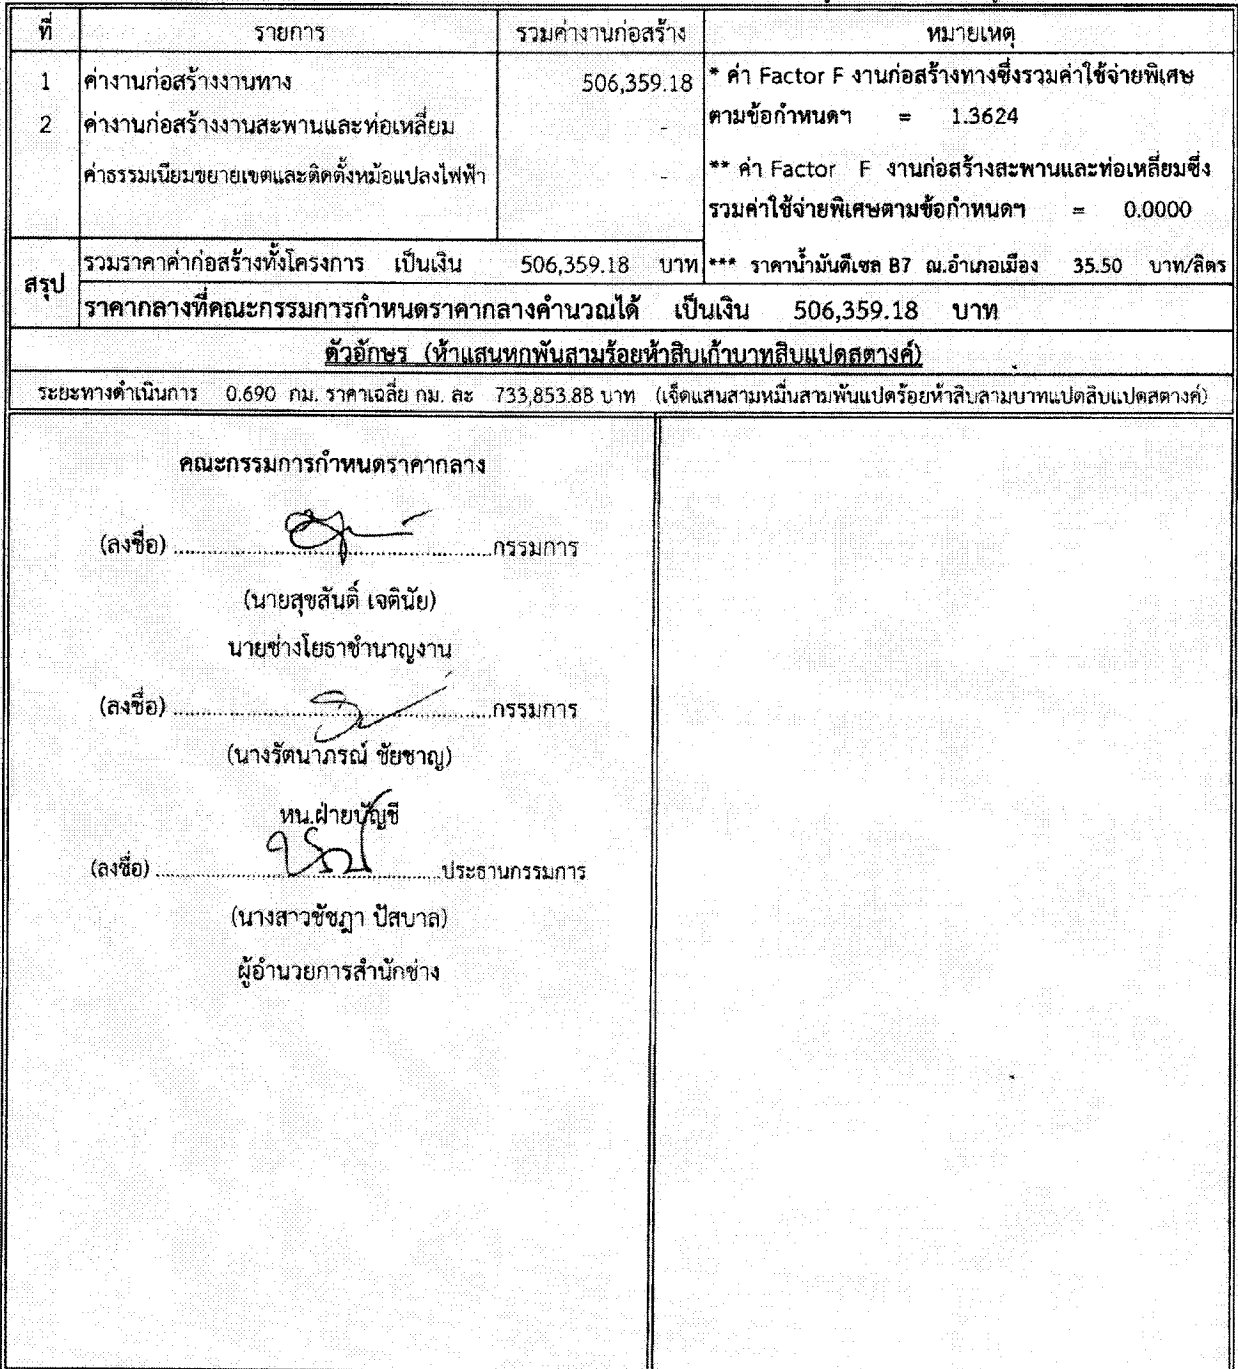 ที่ รายการ รวมค่างานก่อสร้าง หมายเหตุ
1 ค่างานก่อสร้างงานทาง 506,359.18 * ค่า Factor F งานก่อสร้างทางซึ่งรวมค่าใช้จ่ายพิเศษ
ตามข้อกำหนดฯ = 1.3624
2 ค่างานก่อสร้างงานสะพานและท่อเหลี่ยม -
ค่าธรรมเนียมขยายเขตและติดตั้งหม้อแปลงไฟฟ้า - ** ค่า Factor F งานก่อสร้างสะพานและท่อเหลี่ยมซึ่ง
รวมค่าใช้จ่ายพิเศษตามข้อกำหนดฯ = 0.0000
สรุป รวมราคาค่าก่อสร้างทั้งโครงการ เป็นเงิน 506,359.18 บาท *** ราคาน้ำมันดีเซล B7 ณ.อำเภอเมือง 35.50 บาท/ลิตร
ราคากลางที่คณะกรรมการกำหนดราคากลางคำนวณได้ เป็นเงิน 506,359.18 บาท
ตัวอักษร (ห้าแสนหกพันสามร้อยห้าสิบเก้าบาทสิบแปดสตางค์)
ระยะทางดำเนินการ 0.690 กม. ราคาเฉลี่ย กม. ละ 733,853.88 บาท (เจ็ดแสนสามหมื่นสามพันแปดร้อยห้าสิบสามบาทแปดสิบแปดสตางค์)
คณะกรรมการกำหนดราคากลาง
(ลงชื่อ) ................................................กรรมการ
(นายสุขสันติ์ เจตินัย)
นายช่างโยธาชำนาญงาน
(ลงชื่อ) ................................................กรรมการ
(นางรัตนาภรณ์ ชัยชาญ)
หน.ฝ่ายบัญชี
(ลงชื่อ) ..........................................ประธานกรรมการ
(นางสาวชัชฎา ปัสบาล)
ผู้อำนวยการสำนักช่าง